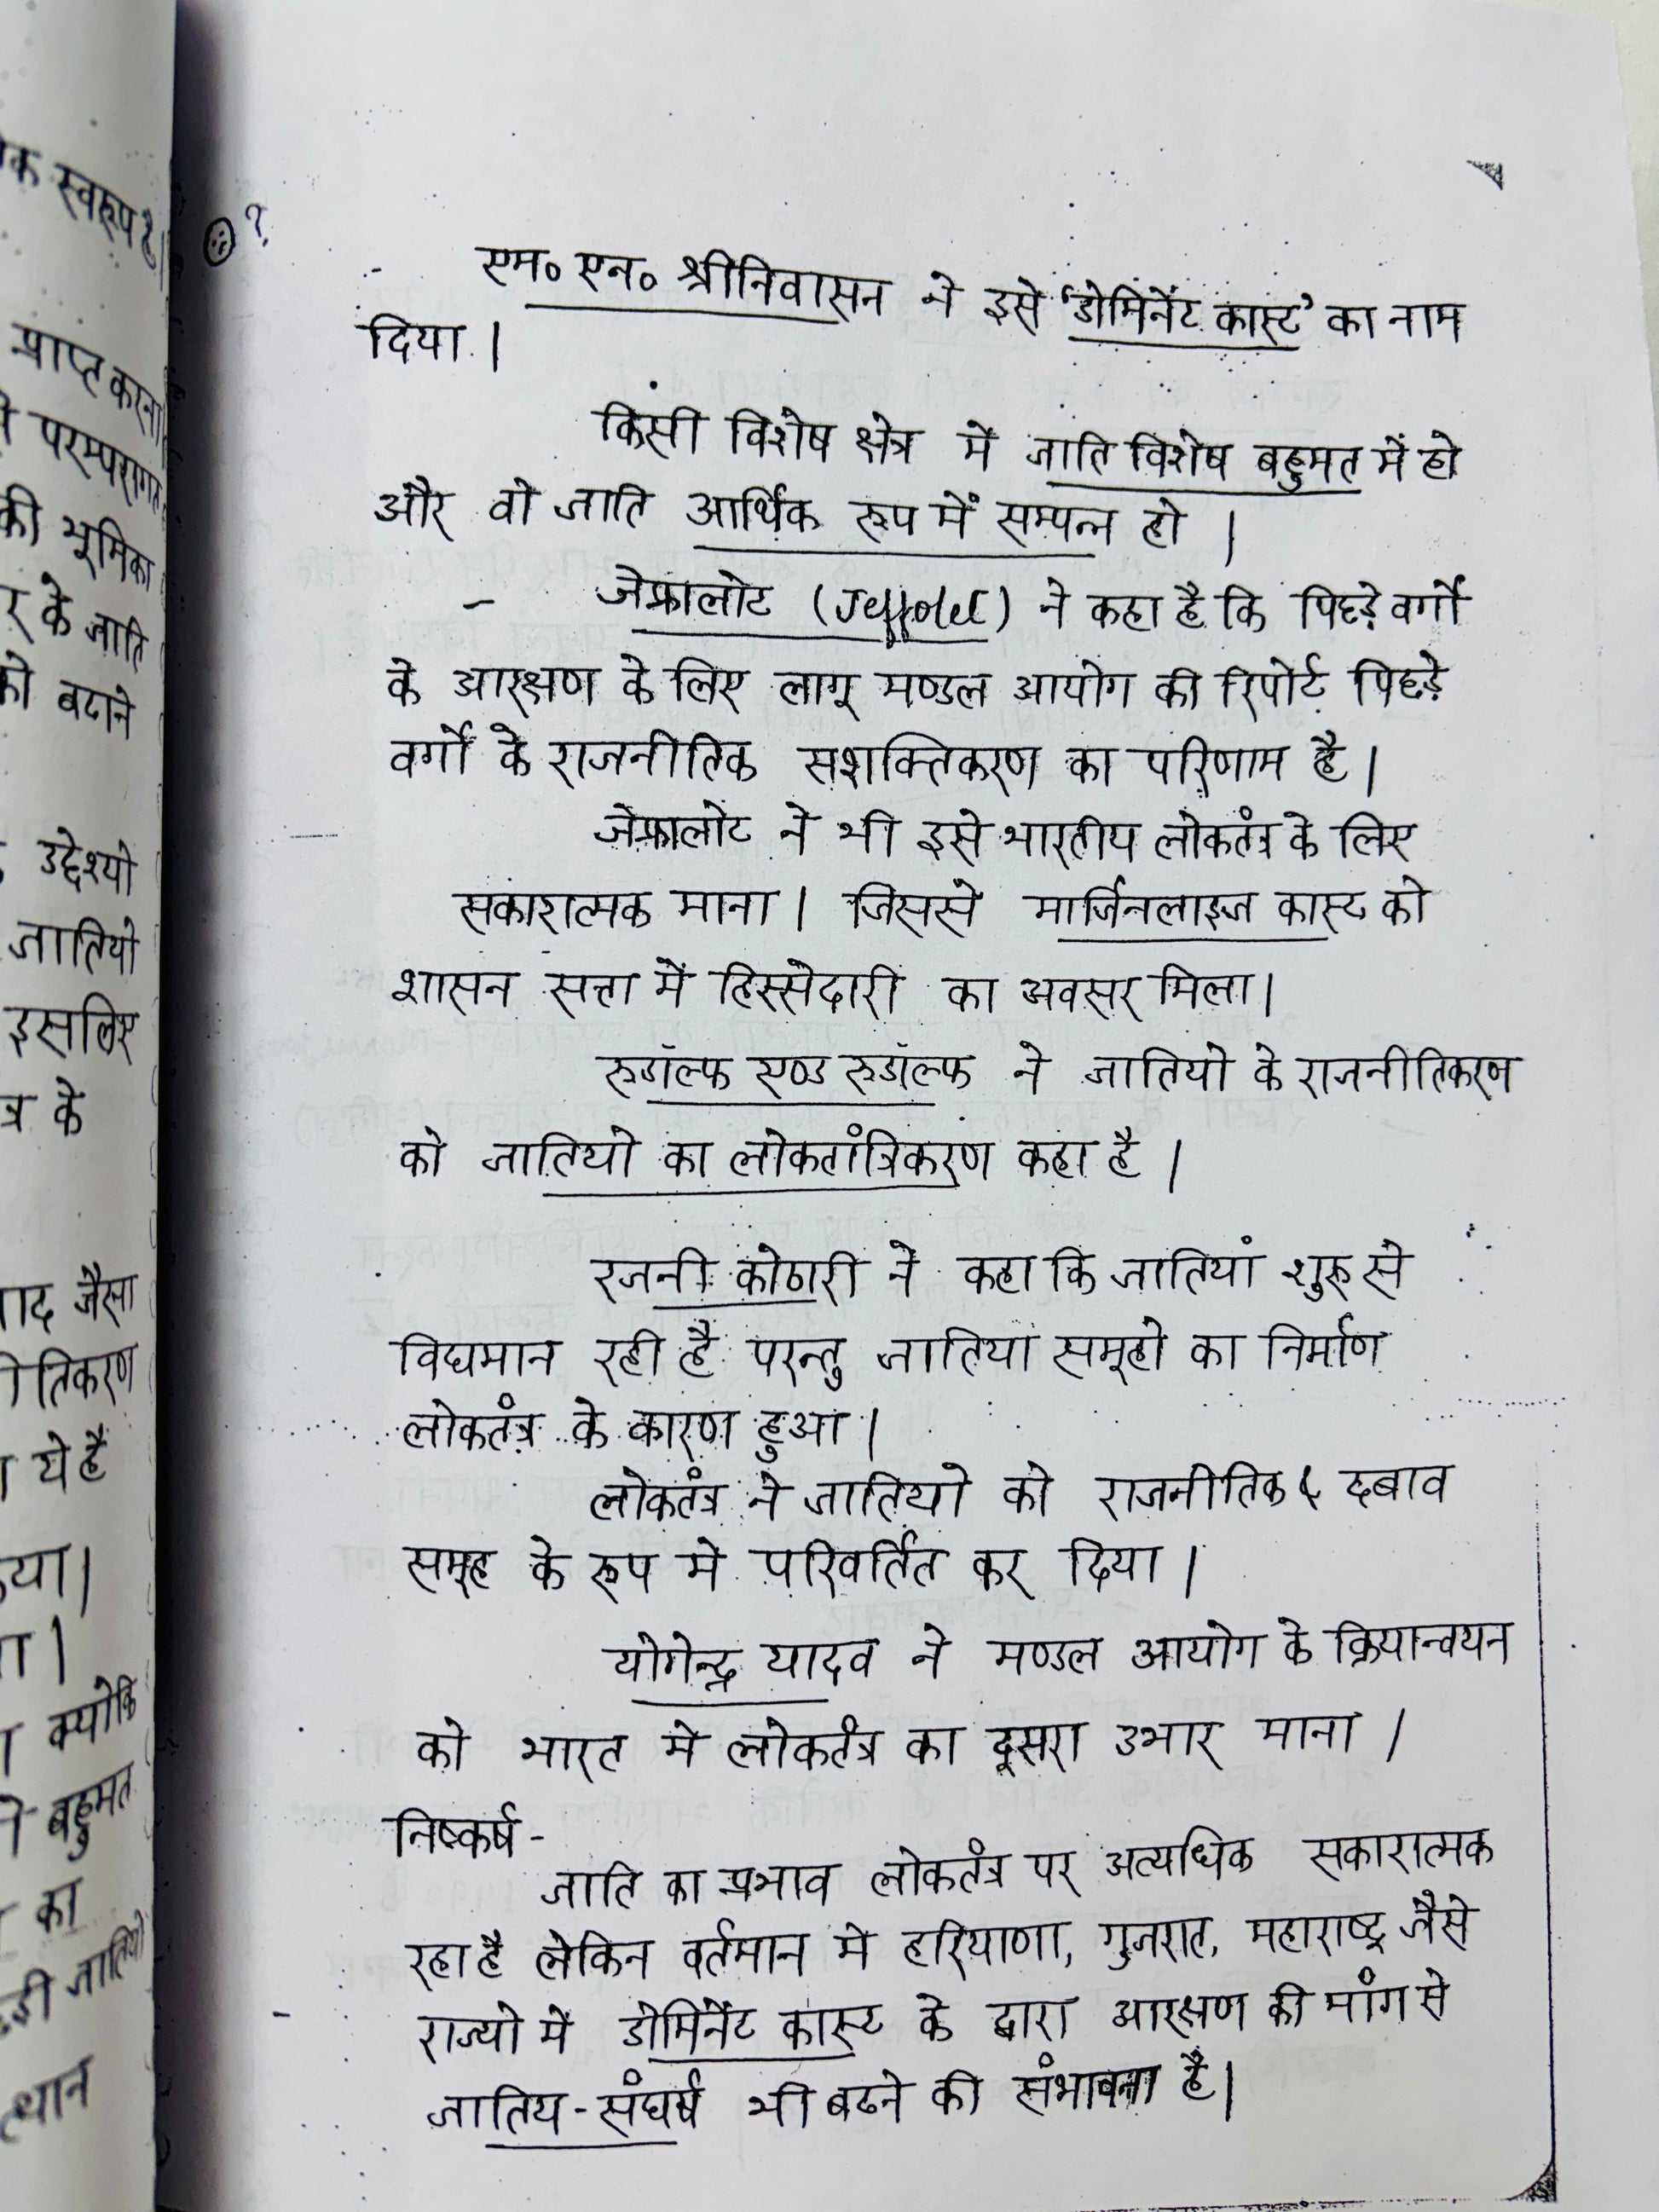 क स्वरूप है।
प्राप्त करना
परम्परागत
की भूमिका
र के जाति
को बढाने
उद्देश्यो
जातियो
इसलिए
त्र के
वाद जैसा
तिकरण
ये है
क्योकि
बहुमत
का
जातियो
त्थान
?
- एम० एन० श्रीनिवासन ने इसे 'डोमिनेंट कास्ट' का नाम
दिया।
किसी विशेष क्षेत्र में जाति विशेष बहुमत में हो
और वो जाति आर्थिक रूप में सम्पन्न हो।
- जेफ्रालोट ने कहा है कि पिछड़े वर्गो
के आरक्षण के लिए लागू मण्डल आयोग की रिपोर्ट पिछड़े
वर्गो के राजनीतिक सशक्तिकरण का परिणाम है।
जेफ्रालोट ने भी इसे भारतीय लोकतंत्र के लिए
सकारात्मक माना। जिससे मार्जिनलाइज कास्ट को
शासन सत्ता में हिस्सेदारी का अवसर मिला।
रुडॉल्फ एण्ड रुडॉल्फ ने जातियो के राजनीतिकरण
को जातियो का लोकतांत्रिकरण कहा है।
रजनी कोठारी ने कहा कि जातियां शुरु से
विद्यमान रही है परन्तु जातिया समूहो का निर्माण
लोकतंत्र के कारण हुआ।
लोकतंत्र ने जातियो को राजनीतिक & दबाव
समूह के रूप मे परिवर्तित कर दिया।
योगेन्द्र यादव ने मण्डल आयोग के क्रियान्वयन
को भारत मे लोकतंत्र का दूसरा उभार माना।
निष्कर्ष -
जाति का प्रभाव लोकतंत्र पर अत्यधिक सकारात्मक
रहा है लेकिन वर्तमान मे हरियाणा, गुजरात, महाराष्ट्र जैसे
राज्यो में डोमिनेंट कास्ट के द्वारा आरक्षण की मांग से
जातिय-संघर्ष भी बढने की संभावना है।